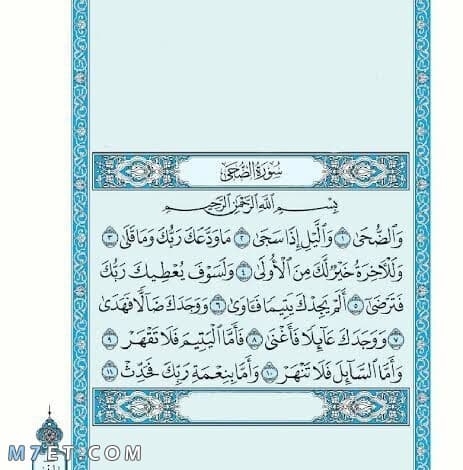 سُورَةُ الضُّحَىٰ
بِسْمِ اللَّهِ الرَّحْمَٰنِ الرَّحِيمِ
وَالضُّحَىٰ ١ وَاللَّيْلِ إِذَا سَجَىٰ ٢ مَا وَدَّعَكَ رَبُّكَ وَمَا قَلَىٰ ٣
وَلَلْآخِرَةُ خَيْرٌ لَّكَ مِنَ الْأُولَىٰ ٤ وَلَسَوْفَ يُعْطِيكَ رَبُّكَ
فَتَرْضَىٰ ٥ أَلَمْ يَجِدْكَ يَتِيمًا فَآوَىٰ ٦ وَوَجَدَكَ ضَالًّا فَهَدَىٰ
٧ وَوَجَدَكَ عَائِلًا فَأَغْنَىٰ ٨ فَأَمَّا الْيَتِيمَ فَلَا تَقْهَرْ ٩
وَأَمَّا السَّائِلَ فَلَا تَنْهَرْ ١٠ وَأَمَّا بِنِعْمَةِ رَبِّكَ فَحَدِّثْ ١١
M7ET.COM